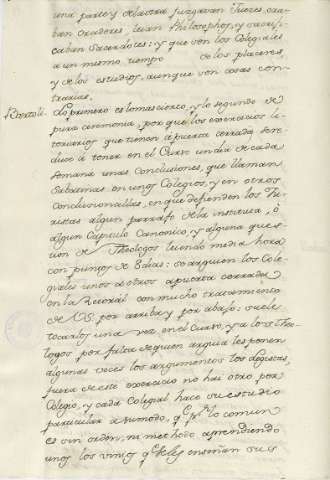 una parte, y de la otra juzgavan Jueces, ora-
ban Oradores, leian Philosophos, y sacrifi-
caban Sacerdotes: y que ven los Colegiales
a un mismo tiempo de los placeres,
y de los estudios, aunque son cosas con-
trarias.
Bartoli. Lo primero es lo mas cierco, y lo segundo de
pura ceremonia, por que los exercicios li-
terarios que tienen a puerta cerrada se re-
duce à tener en el Curso un dia de cada
semana unas Conclusiones, que llaman
Sabatinas en unos Colegios, y en otros
Conclusioncillas, en que defienden los Ju-
ristas algun parrafo de la instituta, ò
algun Capitulo Canonico, y alguna ques-
tion de Theologos leiendo media hora
con puntos de 8 dias: se arguien los Cole-
giales unos a otros a puerta cerrada
en la Rectoral con mucho tratamiento
de VS. por arriba y por abajo: suele
tocarles una vez en el Curso, y a los Theo-
logos por falta de quien arguia les ponen
algunas veces los argumentos los Legistas,
fuera de este exercicio no hai otro por
Colegio, y cada Colegial hace su estudio
particular a su modo, q.e p.r lo comun
es sin orden, ni methodo aprendiendo
unos los vinos q.e les enseñan sus